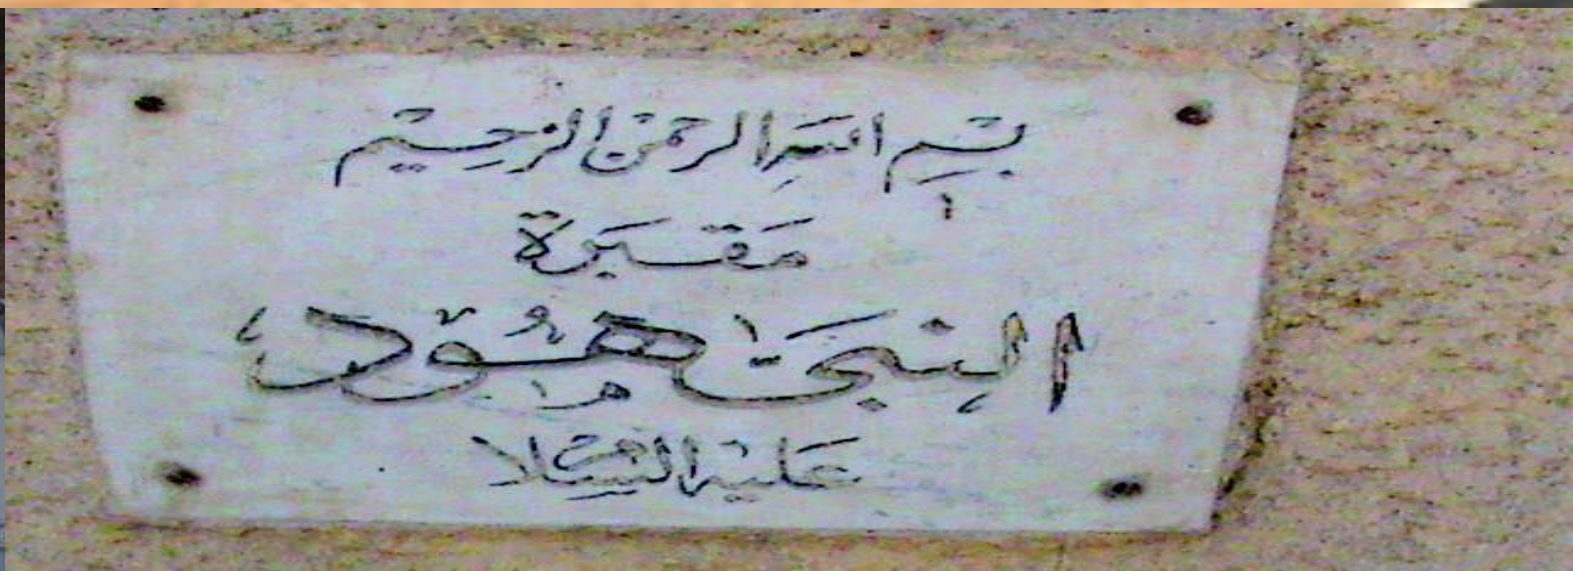 بسم الله الرحمن الرحيم
مقبرة
النبي هود
عليه السلام